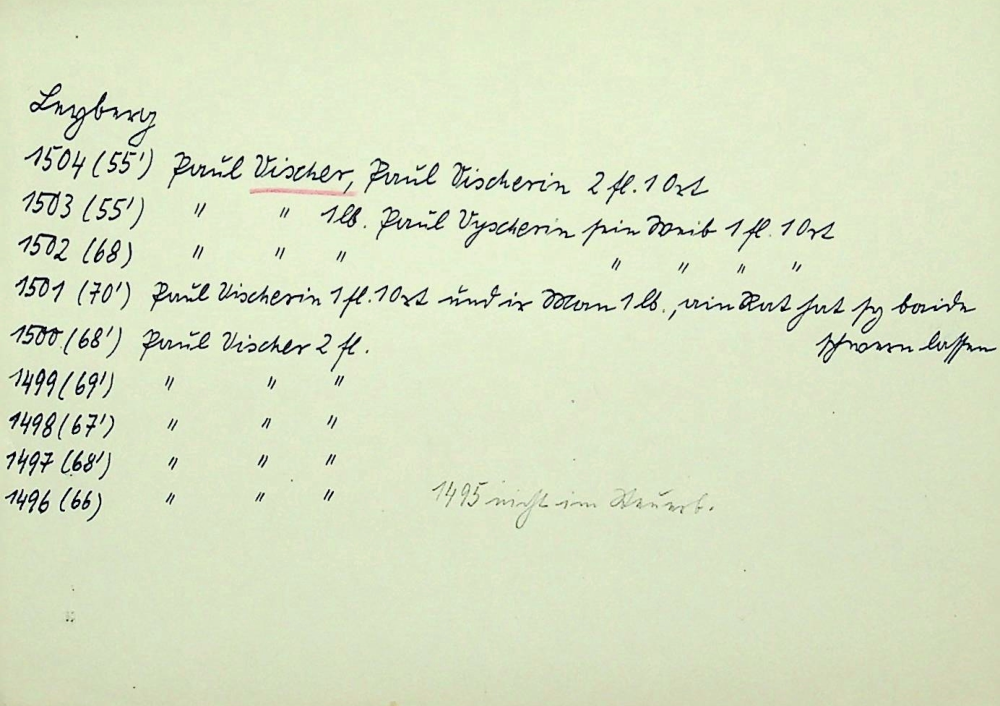 Leyberg
1504 (55') Paul Vischer, Paul Vischerin 2 fl. 1 Ort
1503 (55') " " 1 lb. Paul Vyscherin sein Weib 1 fl. 1 Ort
1502 (68) " " " " " " "
1501 (70') Paul Vischerin 1 fl. 1 Ort und ir Man 1 lb., ain Rat hat sy baide
schwern lassen
1500 (68') Paul Vischer 2 fl.
1499 (69') " " "
1498 (67') " " "
1497 (68') " " "
1496 (66) " " " 1495 nicht im Steuerb.